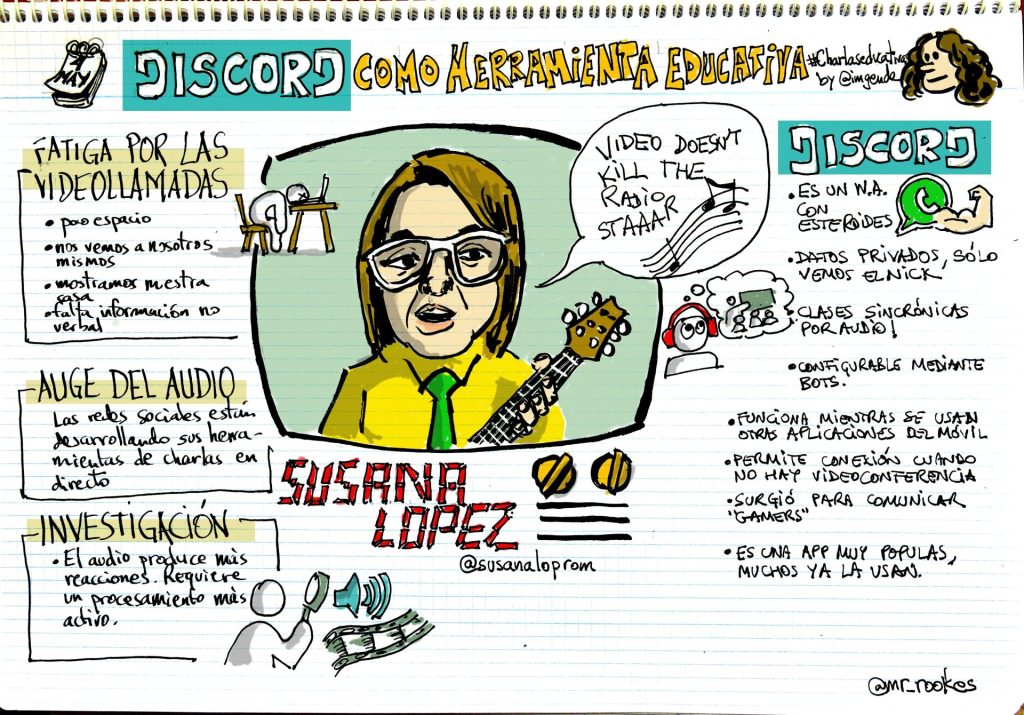 MAY
DISCORD COMO HERRAMIENTA EDUCATIVA
#Charlaseducativas
by @imgende
FATIGA POR LAS
VIDEOLLAMADAS
• poco espacio
• nos vemos a nosotros
mismos
• mostramos nuestra
casa
• falta información no
verbal
AUGE DEL AUDIO
Las redes sociales están
desarrollando sus herra-
mientas de charlas en
directo
INVESTIGACIÓN
• El audio produce más
reacciones. Requiere
un procesamiento más
activo.
VIDEO DOESN'T
KILL THE
RADIO
STAAAR
SUSANA
LOPEZ
@susanaloprom
DISCORD
• ES UN W.A.
CON
ESTEROIDES
• DATOS PRIVADOS, SÓLO
VEMOS EL NICK
CLASES SINCRÓNICAS
POR AUDIO!
• CONFIGURABLE MEDIANTE
BOTS.
• FUNCIONA MIENTRAS SE USAN
OTRAS APLICACIONES DEL MÓVIL
• PERMITE CONEXIÓN CUANDO
NO HAY VIDEOCONFERENCIA
• SURGIÓ PARA COMUNICAR
"GAMERS"
• ES UNA APP MUY POPULAS,
MUCHOS YA LA USAN.
@mr_rookes